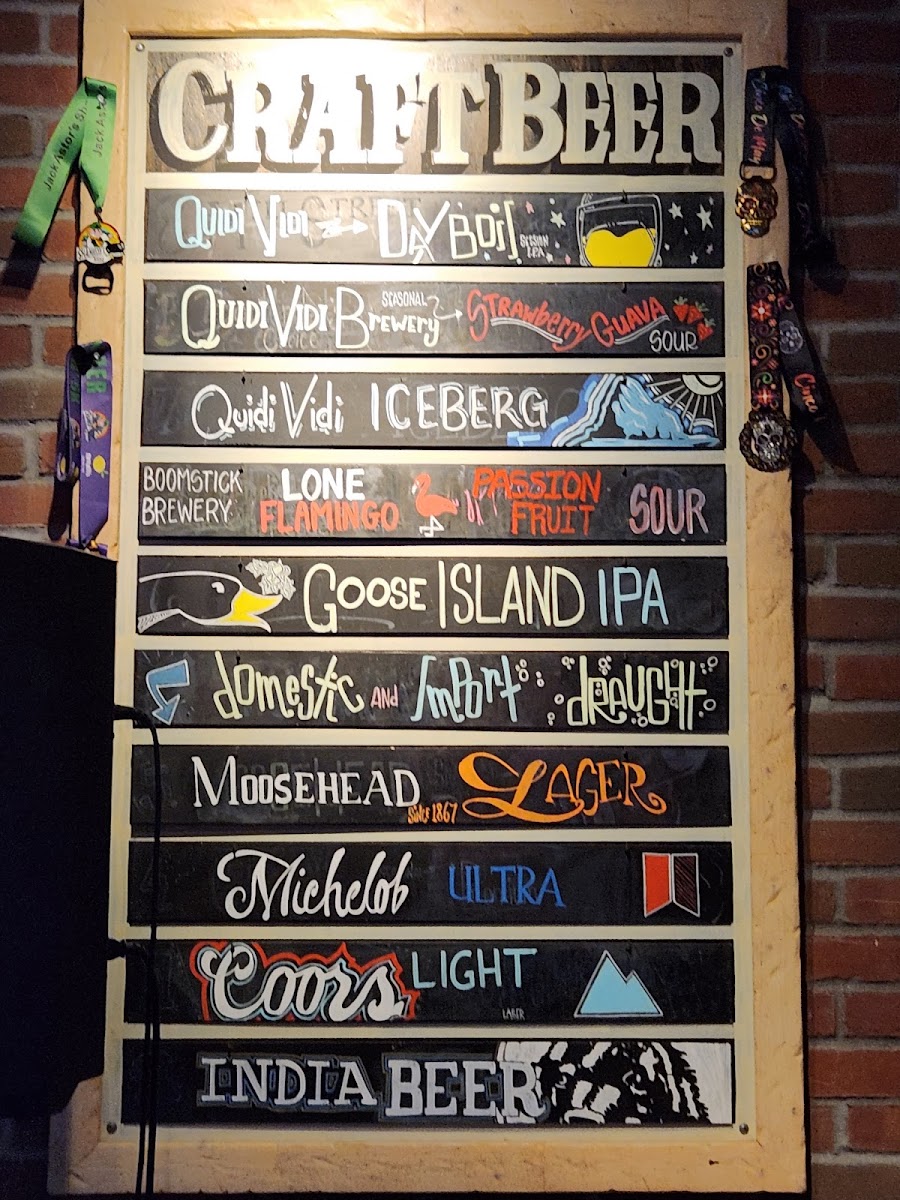 CRAFT BEER
Jack Astor's
Jack Astor's
QUIDI VIDI DAYBOIL SESSION IPA
QUIDI VIDI BREWERY SEASONAL STRAWBERRY GUAVA SOUR
QUIDI VIDI ICEBERG
BOOMSTICK BREWERY LONE FLAMINGO PASSION FRUIT SOUR
GOOSE ISLAND IPA
domestic AND Import draught
MOOSEHEAD SINCE 1867 LAGER
Michelob ULTRA
Coors LIGHT LAGER
INDIA BEER